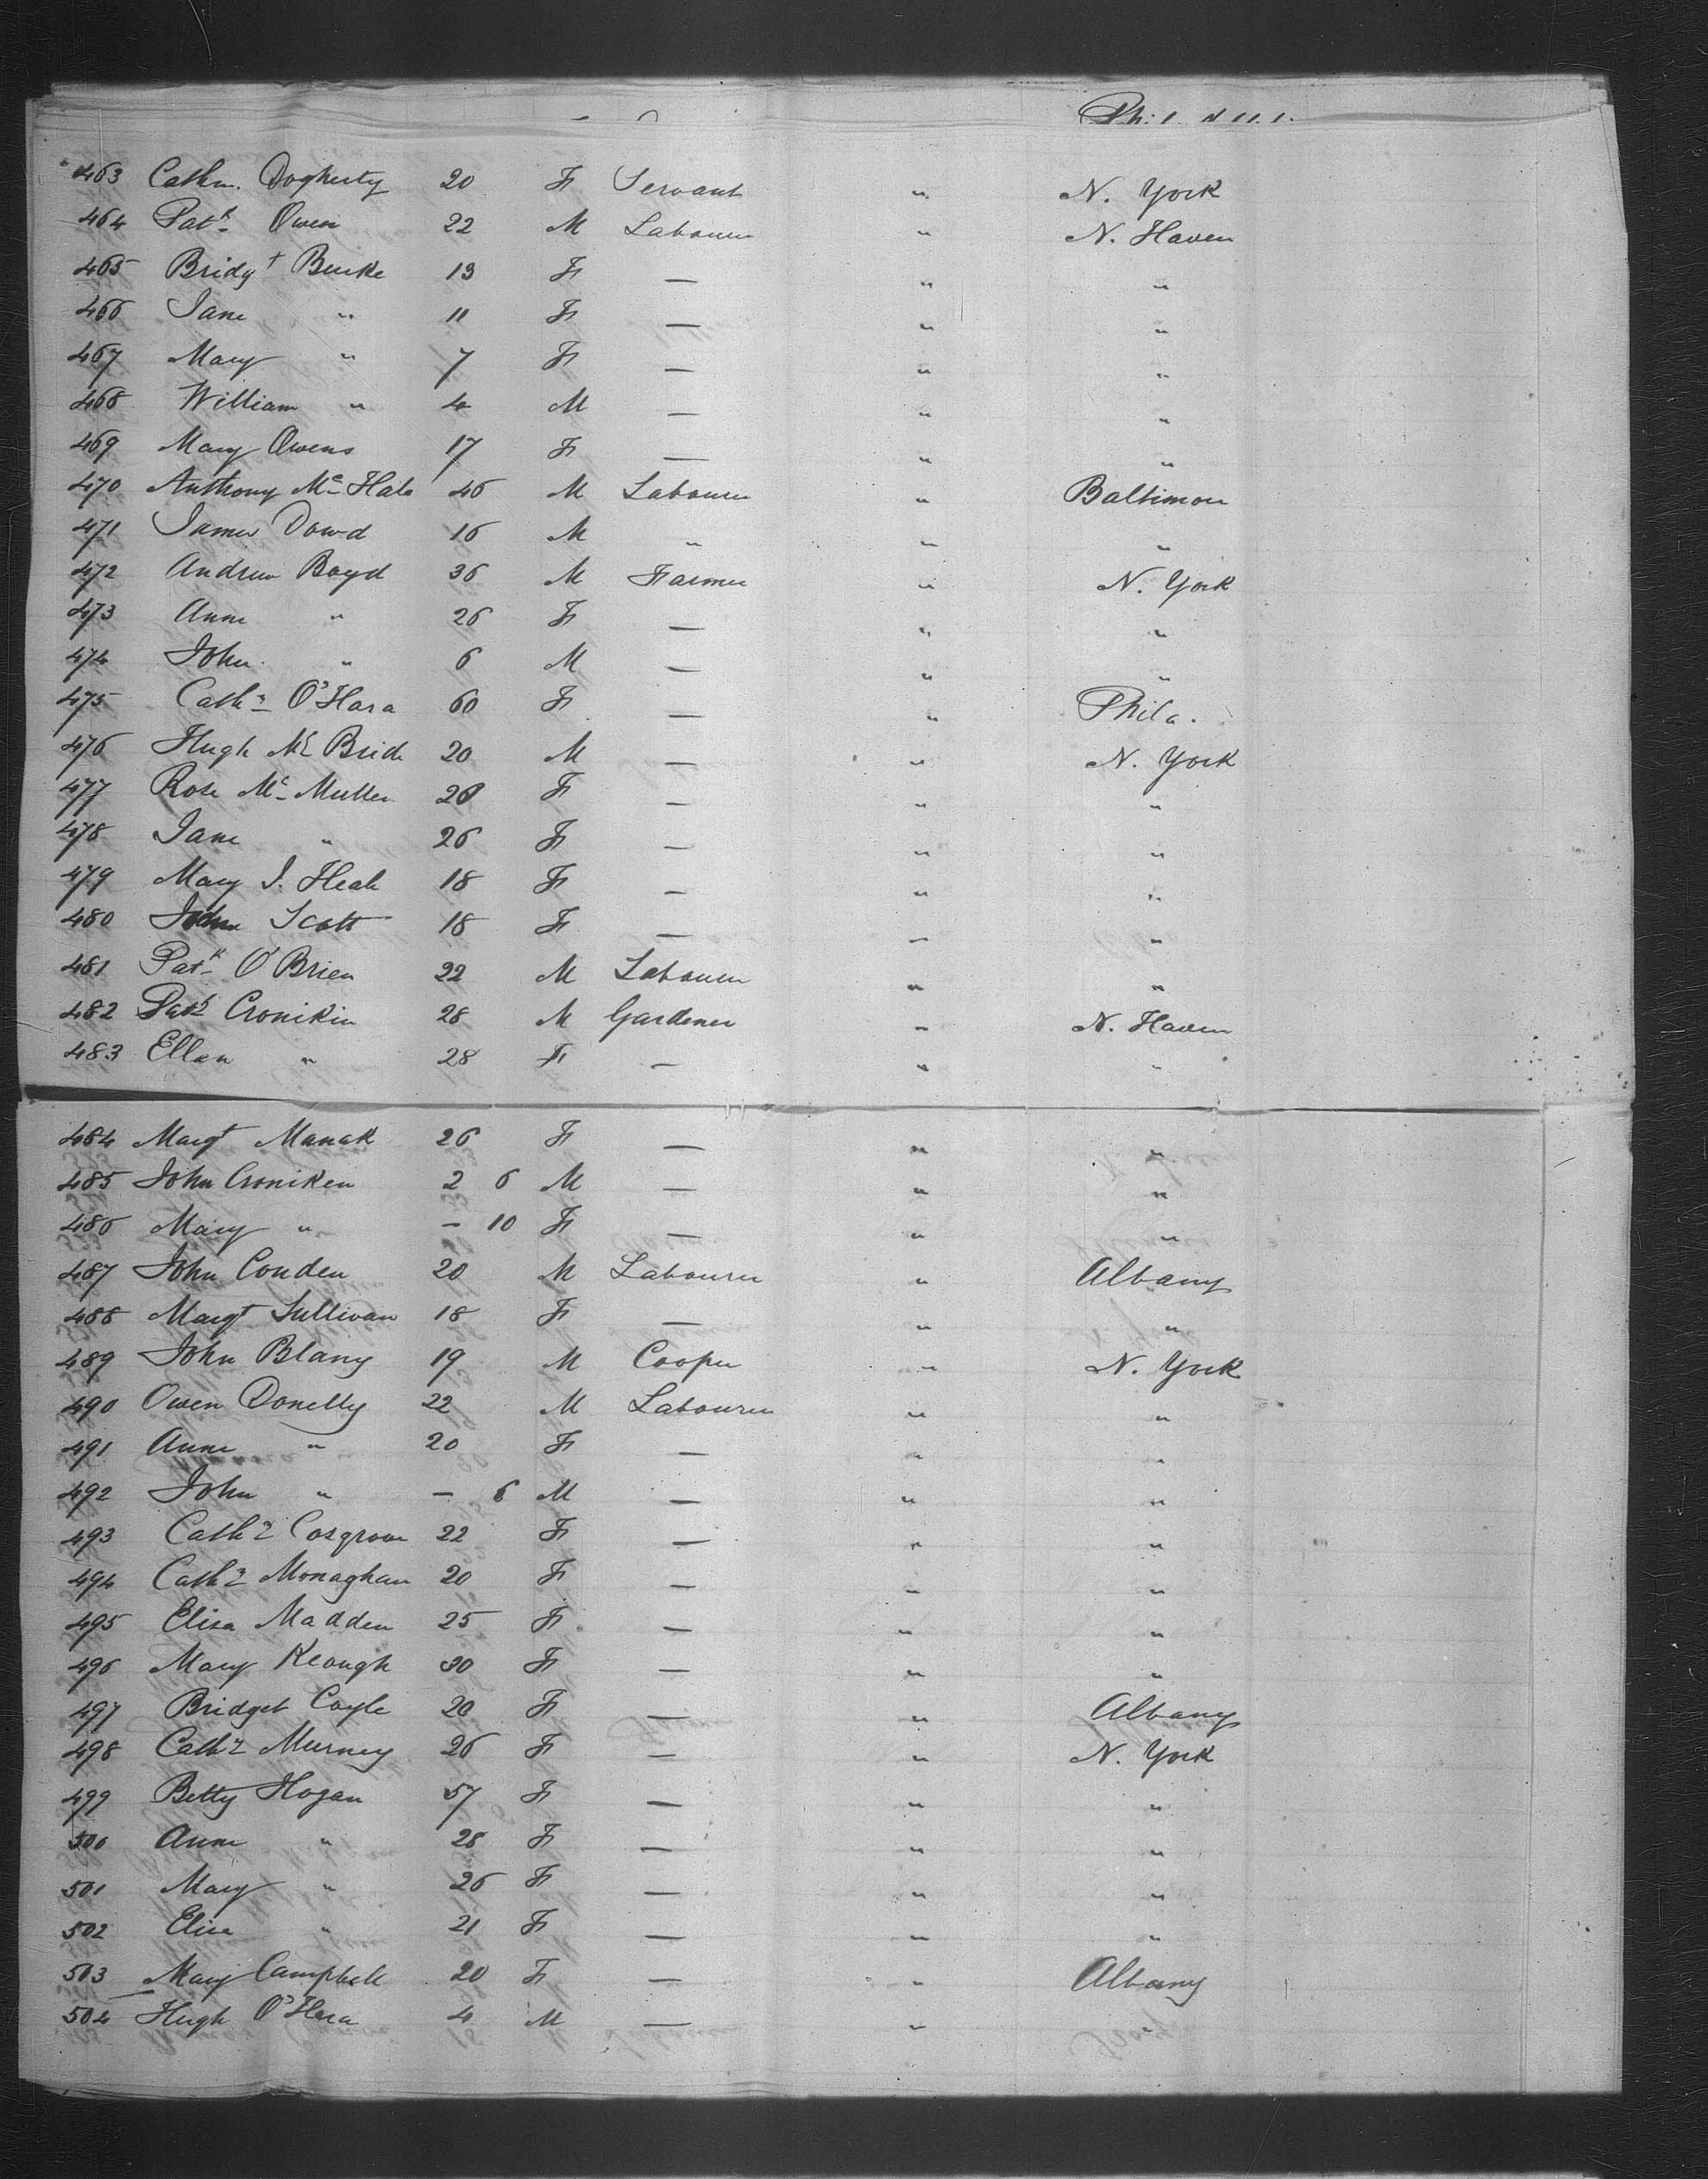 463 Cathn. Dogherty 20 F Servant " N. York
464 Patk Owen 22 M Labourer " N. Haven
465 Bridgt Burke 13 F — " "
466 Jane " 11 F — " "
467 Mary " 7 F — " "
468 William " 4 M — " "
469 Mary Owens 17 F — " "
470 Anthony Mc Hale 46 M Labourer " Baltimore
471 James Dowd 16 M " " "
472 Andrew Boyd 36 M Farmer " N. York
473 Anne " 26 F — " "
474 John " 6 M — " "
475 Cathn O'Hara 60 F — " Phila.
476 Hugh Mc Bride 20 M — " N. York
477 Rose Mc Mullen F — " "
478 Jane " 26 F — " "
479 Mary J. 18 F — " "
480 Scott 18 F — " "
481 Patk O'Brien 22 M Labourer " "
482 Patk Cronikin 28 M Gardener " N. Haven
483 Ellen " 28 F — " "
484 Margt Manak 26 F — " "
485 John Croniken 2 6 M — " "
486 Mary " — 10 F — " "
487 John Conden 20 M Labourer " Albany
488 Margt Sullivan 18 F — " "
489 John Blany 19 M Cooper " N. York
490 Owen Donelly 22 M Labourer " "
491 Anne " 20 F — " "
492 John " — 6 M — " "
493 Cathn Cosgrove 22 F — " "
494 Cathn Monaghan 20 F — " "
495 Eliza Madden 25 F — " "
496 Mary Keough 30 F — " "
497 Bridget Coyle 20 F — " Albany
498 Cathn Murney 26 F — " N. York
499 Betty Hogan 57 F — " "
500 Anne " 28 F — " "
501 Mary " 26 F — " "
502 Eliza " 21 F — " "
503 Mary Campbell 20 F — " Albany
504 Hugh O'Hara 4 M — " "